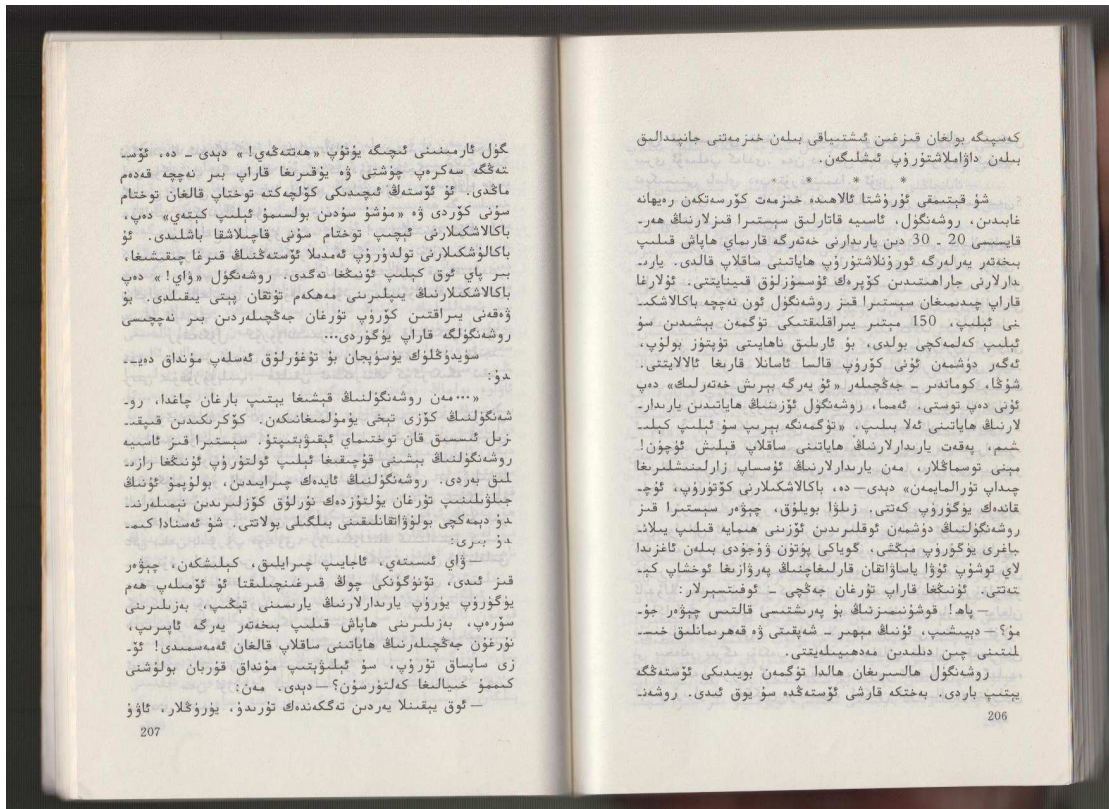 كەسپىگە بولغان قىزغىن ئىشتىياقى بىلەن خىزمەتنى جانپىدالىق
بىلەن داۋاملاشتۇرۇپ ئىشلىگەن.
* * *
شۇ قېتىمقى ئۇرۇشتا ئالاھىدە خىزمەت كۆرسەتكەن رەيھانە
غابىدىن، روشەنگۈل، ئاسىيە قاتارلىق سېستىرا قىزلارنىڭ ھەر-
قايسىسى 20 ـ 30 دىن يارىدارنى خەتەرگە قارىماي ھاپاش قىلىپ
بىخەتەر يەرلەرگە ئورۇنلاشتۇرۇپ ھاياتىنى ساقلاپ قالدى. يارى-
دارلارنى جاراھىتىدىن كۆپرەك ئۇسسۇزلۇق قىينايتتى. ئۇلارغا
قاراپ چىدىمىغان سېستىرا قىز روشەنگۈل ئون نەچچە باكالاشكى-
نى ئېلىپ، 150 مېتىر يىراقلىقتىكى تۈگمەن بېشىدىن سۇ
ئېلىپ كەلمەكچى بولدى، بۇ ئارىلىق ناھايىتى تۈپتۈز بولۇپ،
ئەگەر دۈشمەن ئۇنى كۆرۈپ قالسا ئاسانلا قارىغا ئالالايتتى.
شۇڭا، كوماندىر ـ جەڭچىلەر «ئۇ يەرگە بېرىش خەتەرلىك» دەپ
ئۇنى دەپ توستى. ئەمما، روشەنگۈل ئۆزىنىڭ ھاياتىدىن يارىدار-
لارنىڭ ھاياتىنى ئەلا بىلىپ، «تۈگمەنگە بېرىپ سۇ ئېلىپ كېلى-
شىم، پەقەت يارىدارلارنىڭ ھاياتىنى ساقلاپ قېلىش ئۈچۈن!
مېنى توسماڭلار، مەن يارىدارلارنىڭ ئۇسساپ زارلىنىشلىرىغا
چىداپ تۇرالمايمەن» دېدى—دە، باكالاشكىلارنى كۆتۈرۈپ، ئۇچ-
قاندەك يۈگۈرۈپ كەتتى. زىلۋا بويلۇق، چېۋەر سېستىرا قىز
روشەنگۈلنىڭ دۈشمەن ئوقلىرىدىن ئۆزىنى ھىمايە قىلىپ يىلان-
باغرى يۈگۈرۈپ مېڭىشى، گوياكى پۈتۈن ۋۇجۇدى بىلەن ئاغزىدا
لاي توشۇپ ئۇۋا ياساۋاتقان قارلىغاچنىڭ پەرۋازىغا ئوخشاپ كې-
تەتتى. ئۇنىڭغا قاراپ تۇرغان جەڭچى ـ ئوفىتسېرلار:
— پاھ! قوشۇنىمىزنىڭ بۇ پەرىشتىسى قالتىس چېۋەر جۇ-
مۇ؟ — دېيىشىپ، ئۇنىڭ مېھىر ـ شەپقىتى ۋە قەھرىمانلىق خىس-
لىتىنى چىن دىلىدىن مەدھىيىلەيتتى.
روشەنگۈل ھالسىرىغان ھالدا تۈگمەن بويىدىكى ئۆستەڭگە
يېتىپ باردى. بەختكە قارشى ئۆستەڭدە سۇ يوق ئىدى. روشەن-
206
گۈل ئارمىنىنى ئىچىگە يۈتۈپ «ھەتتەڭەي!» دېدى ـ دە، ئۆس-
تەڭگە سەكرەپ چۈشتى ۋە يۇقىرىغا قاراپ بىر نەچچە قەدەم
ماڭدى. ئۇ ئۆستەڭ ئىچىدىكى كۆلچەكتە توختاپ قالغان توختام
سۇنى كۆردى ۋە «مۇشۇ سۇدىن بولسىمۇ ئېلىپ كېتەي» دەپ،
باكالاشكىلارنى ئېچىپ توختام سۇنى قاچىلاشقا باشلىدى. ئۇ
باكالۇشكىلارنى تولدۇرۇپ ئەمدىلا ئۆستەڭنىڭ قىرغا چىقىشىغا،
بىر پاي ئوق كېلىپ ئۇنىڭغا تەگدى. روشەنگۈل «ۋاي!» دەپ
باكالاشكىلارنىڭ يىپلىرىنى مەھكەم تۇتقان پېتى يىقىلدى. بۇ
ۋەقەنى يىراقتىن كۆرۈپ تۇرغان جەڭچىلەردىن بىر نەچچىسى
روشەنگۈلگە قاراپ يۈگۈردى...
سۈيدۈڭلۈك يۈسۈپجان بۇ توغرۇلۇق ئەسلەپ مۇنداق دەيـ-
دۇ:
«...مەن روشەنگۈلنىڭ قېشىغا يېتىپ بارغان چاغدا، رو-
شەنگۈلنىڭ كۆزى تېخى يۇمۇلمىغانىكەن. كۆكرىكىدىن قىپقى-
زىل ئىسسىق قان توختىماي ئېقىۋېتىپتۇ. سېستىرا قىز ئاسىيە
روشەنگۈلنىڭ بېشىنى قۇچىقىغا ئېلىپ ئولتۇرۇپ ئۇنىڭغا رازى-
لىق بەردى. روشەنگۈلنىڭ ئايدەك چىرايىدىن، بولۇپمۇ ئۇنىڭ
جىلۋىلىنىپ تۇرغان يۇلتۇزدەك نۇرلۇق كۆزلىرىدىن نېمىلەرنى-
دۇ دېمەكچى بولۇۋاتقانلىقىنى بىلگىلى بولاتتى. شۇ ئەسنادا كىم-
دۇ بىرى:
— ۋاي ئىسىتەي، ئاجايىپ چىرايلىق، كېلىشكەن، چېۋەر
قىز ئىدى، تۈنۈگۈنكى چوڭ قىرغىنچىلىقتا ئۇ ئۆمىلەپ ھەم
يۈگۈرۈپ يۈرۈپ يارىدارلارنىڭ يارىسىنى تېڭىپ، بەزىلىرىنى
سۆرەپ، بەزىلىرىنى ھاپاش قىلىپ بىخەتەر يەرگە ئاپىرىپ،
نۇرغۇن جەڭچىلەرنىڭ ھاياتىنى ساقلاپ قالغان ئەمەسمىدى! ئۆ-
زى ساپساق تۇرۇپ، سۇ ئېلىۋېتىپ مۇنداق قۇربان بولۇشنى
كىممۇ خىيالىغا كەلتۈرسۇن؟ — دېدى. مەن:
— ئوق يېقىنلا يەردىن تەگكەندەك تۇرىدۇ، يۈرۈڭلار، ئاۋۇ
207